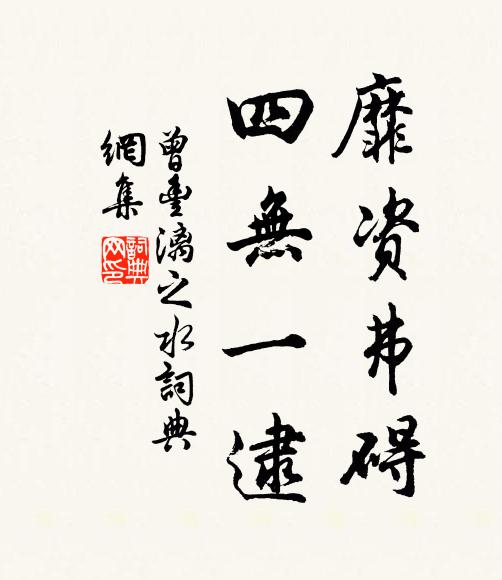 靡資弗碍
四無一逮
曾豊漓之水詞典
網集
詞典网印